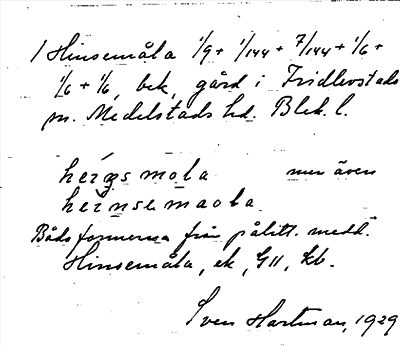 1 Hinsemåla 1/9 + 1/144 + 7/144 + 1/6 +
1/6 + 1/6, bek, gård i Fridlevstads
sn. Medelstads hd. Blek. l.
hérŋs mola mer även
hérnse maola
Båda formerna från pålitl. medd.
Hinsemåla, ek, G11, Kb.
Sven Hartman, 1929